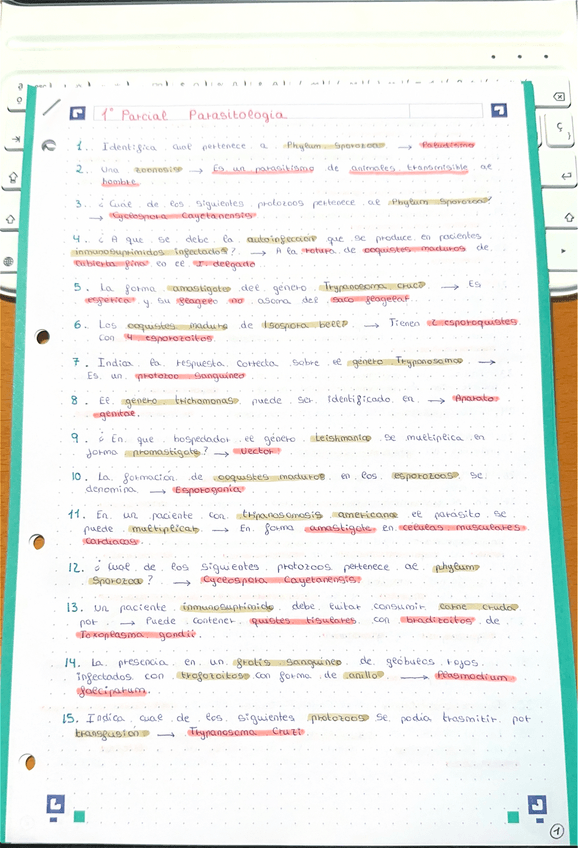 1º Parcial Parasitología
1. Identifica cual pertenece a Phylum Sporozoa →
2. Una zoonosis → Es un parasitismo de animales transmisible al
hombre.
3. ¿Cual de los siguientes protozoos pertenece al Phylum Sporozoa?
→ Cyclospora Cayetanensis
4. ¿A que se debe la autoinfección que se produce en pacientes
inmunosuprimidos infectados? → A la rotura de ooquistes maduros de
cubierta fina en el I. delgado
5. La forma amastigote del género Trypanosoma cruci → Es
esférica y su flagelo no asoma del saco flagelar
6. Los ooquistes maduro de Isospora belli → Tienen 2 esporoquistes
con 4 esporozoitos
7. Indica la respuesta correcta sobre el género Trypanosoma →
Es un protozoo sanguíneo
8. El género trichomonas puede ser identificado en → Aparato
genital.
9. ¿En que hospedador el género leishmania se multiplica en
forma promastigote? → Vector
10. La formación de ooquistes maduros en los esporozoos se
denomina → Esporogonia
11. En un paciente con tripanosomosis americana el parásito se
puede multiplicar → En forma amastigote en celulas musculares
cardiacas.
12. ¿Cual de los siguientes protozoos pertenece al phylum
Sporozoa? → Cyclospora Cayetanensis.
13. Un paciente inmunosuprimido debe evitar consumir carne cruda
por → Puede contener quistes tisulares con bradizoitos de
Toxoplasma gondii.
14. La presencia en un frotis sanguíneo de globulos rojos
infectados con trofozoitos con forma de anillo → Plasmodium
falciparum.
15. Indica cual de los siguientes protozoos se podía trasmitir por
transfusión → Trypanosoma Cruzi
1